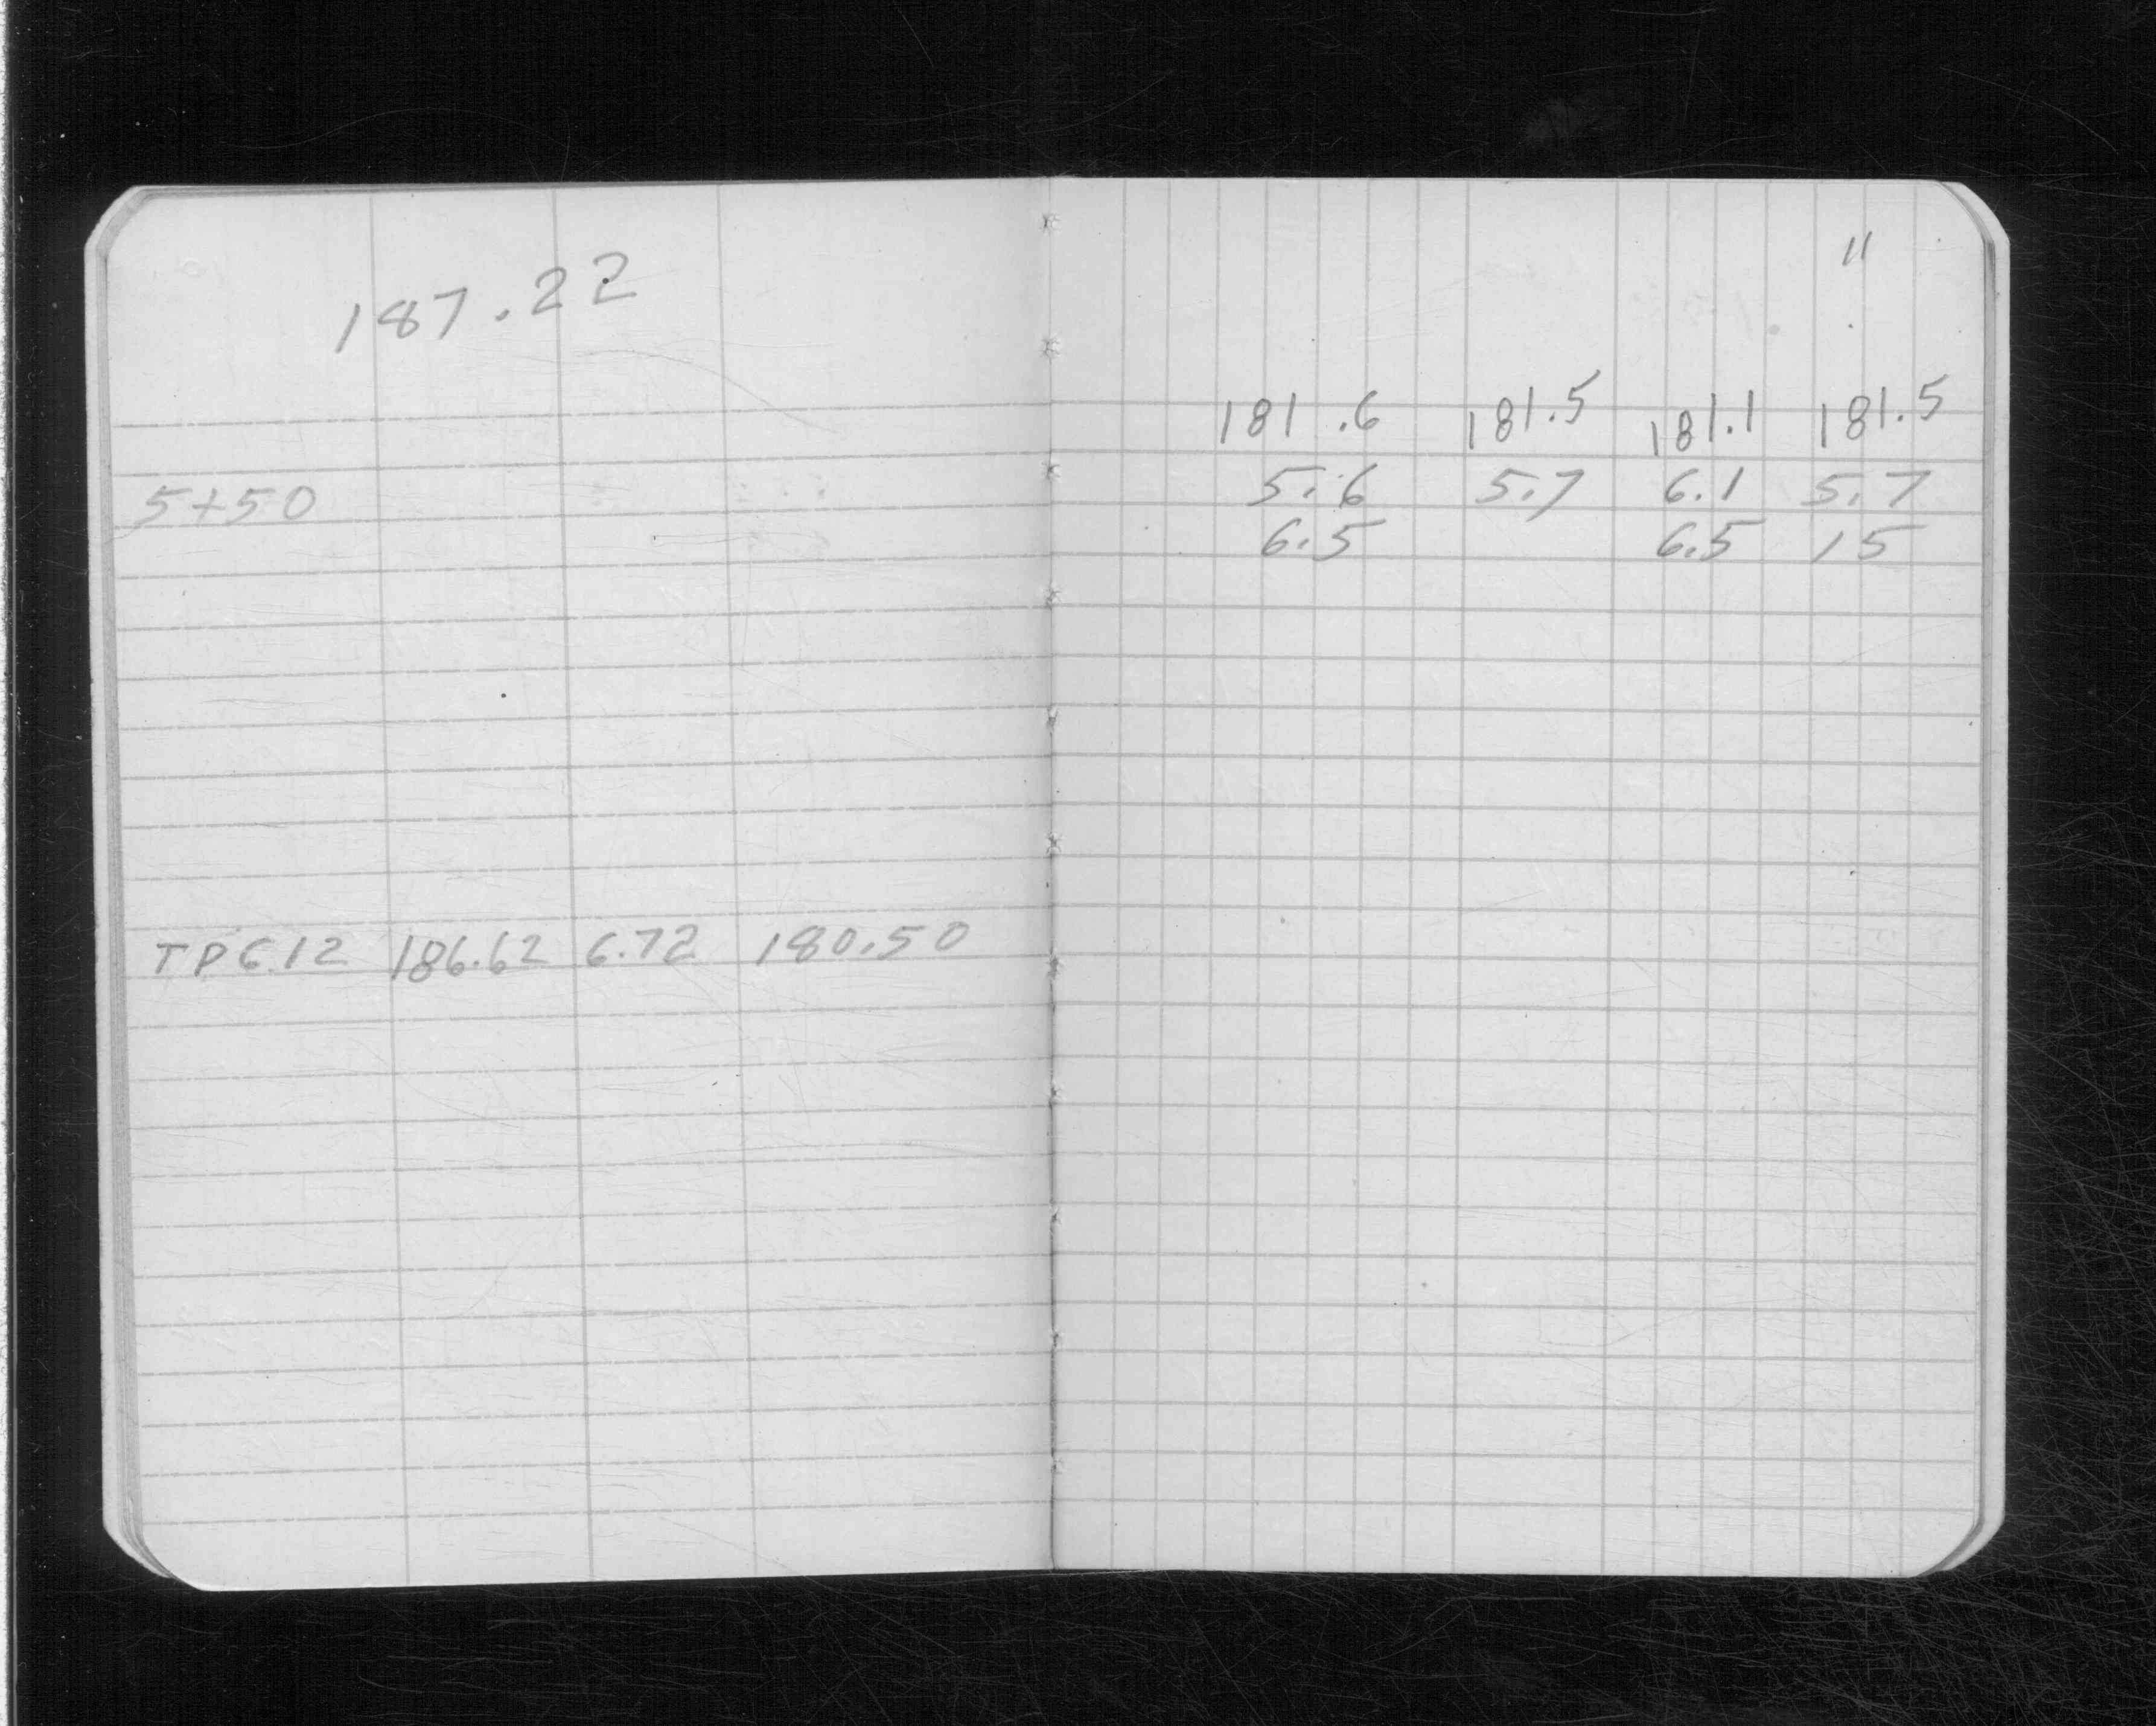 187.22
5+50
TP 6.12 186.62 6.72 180.50
11
181.6 181.5 181.1 181.5
5.6 5.7 6.1 5.7
6.5 6.5 15